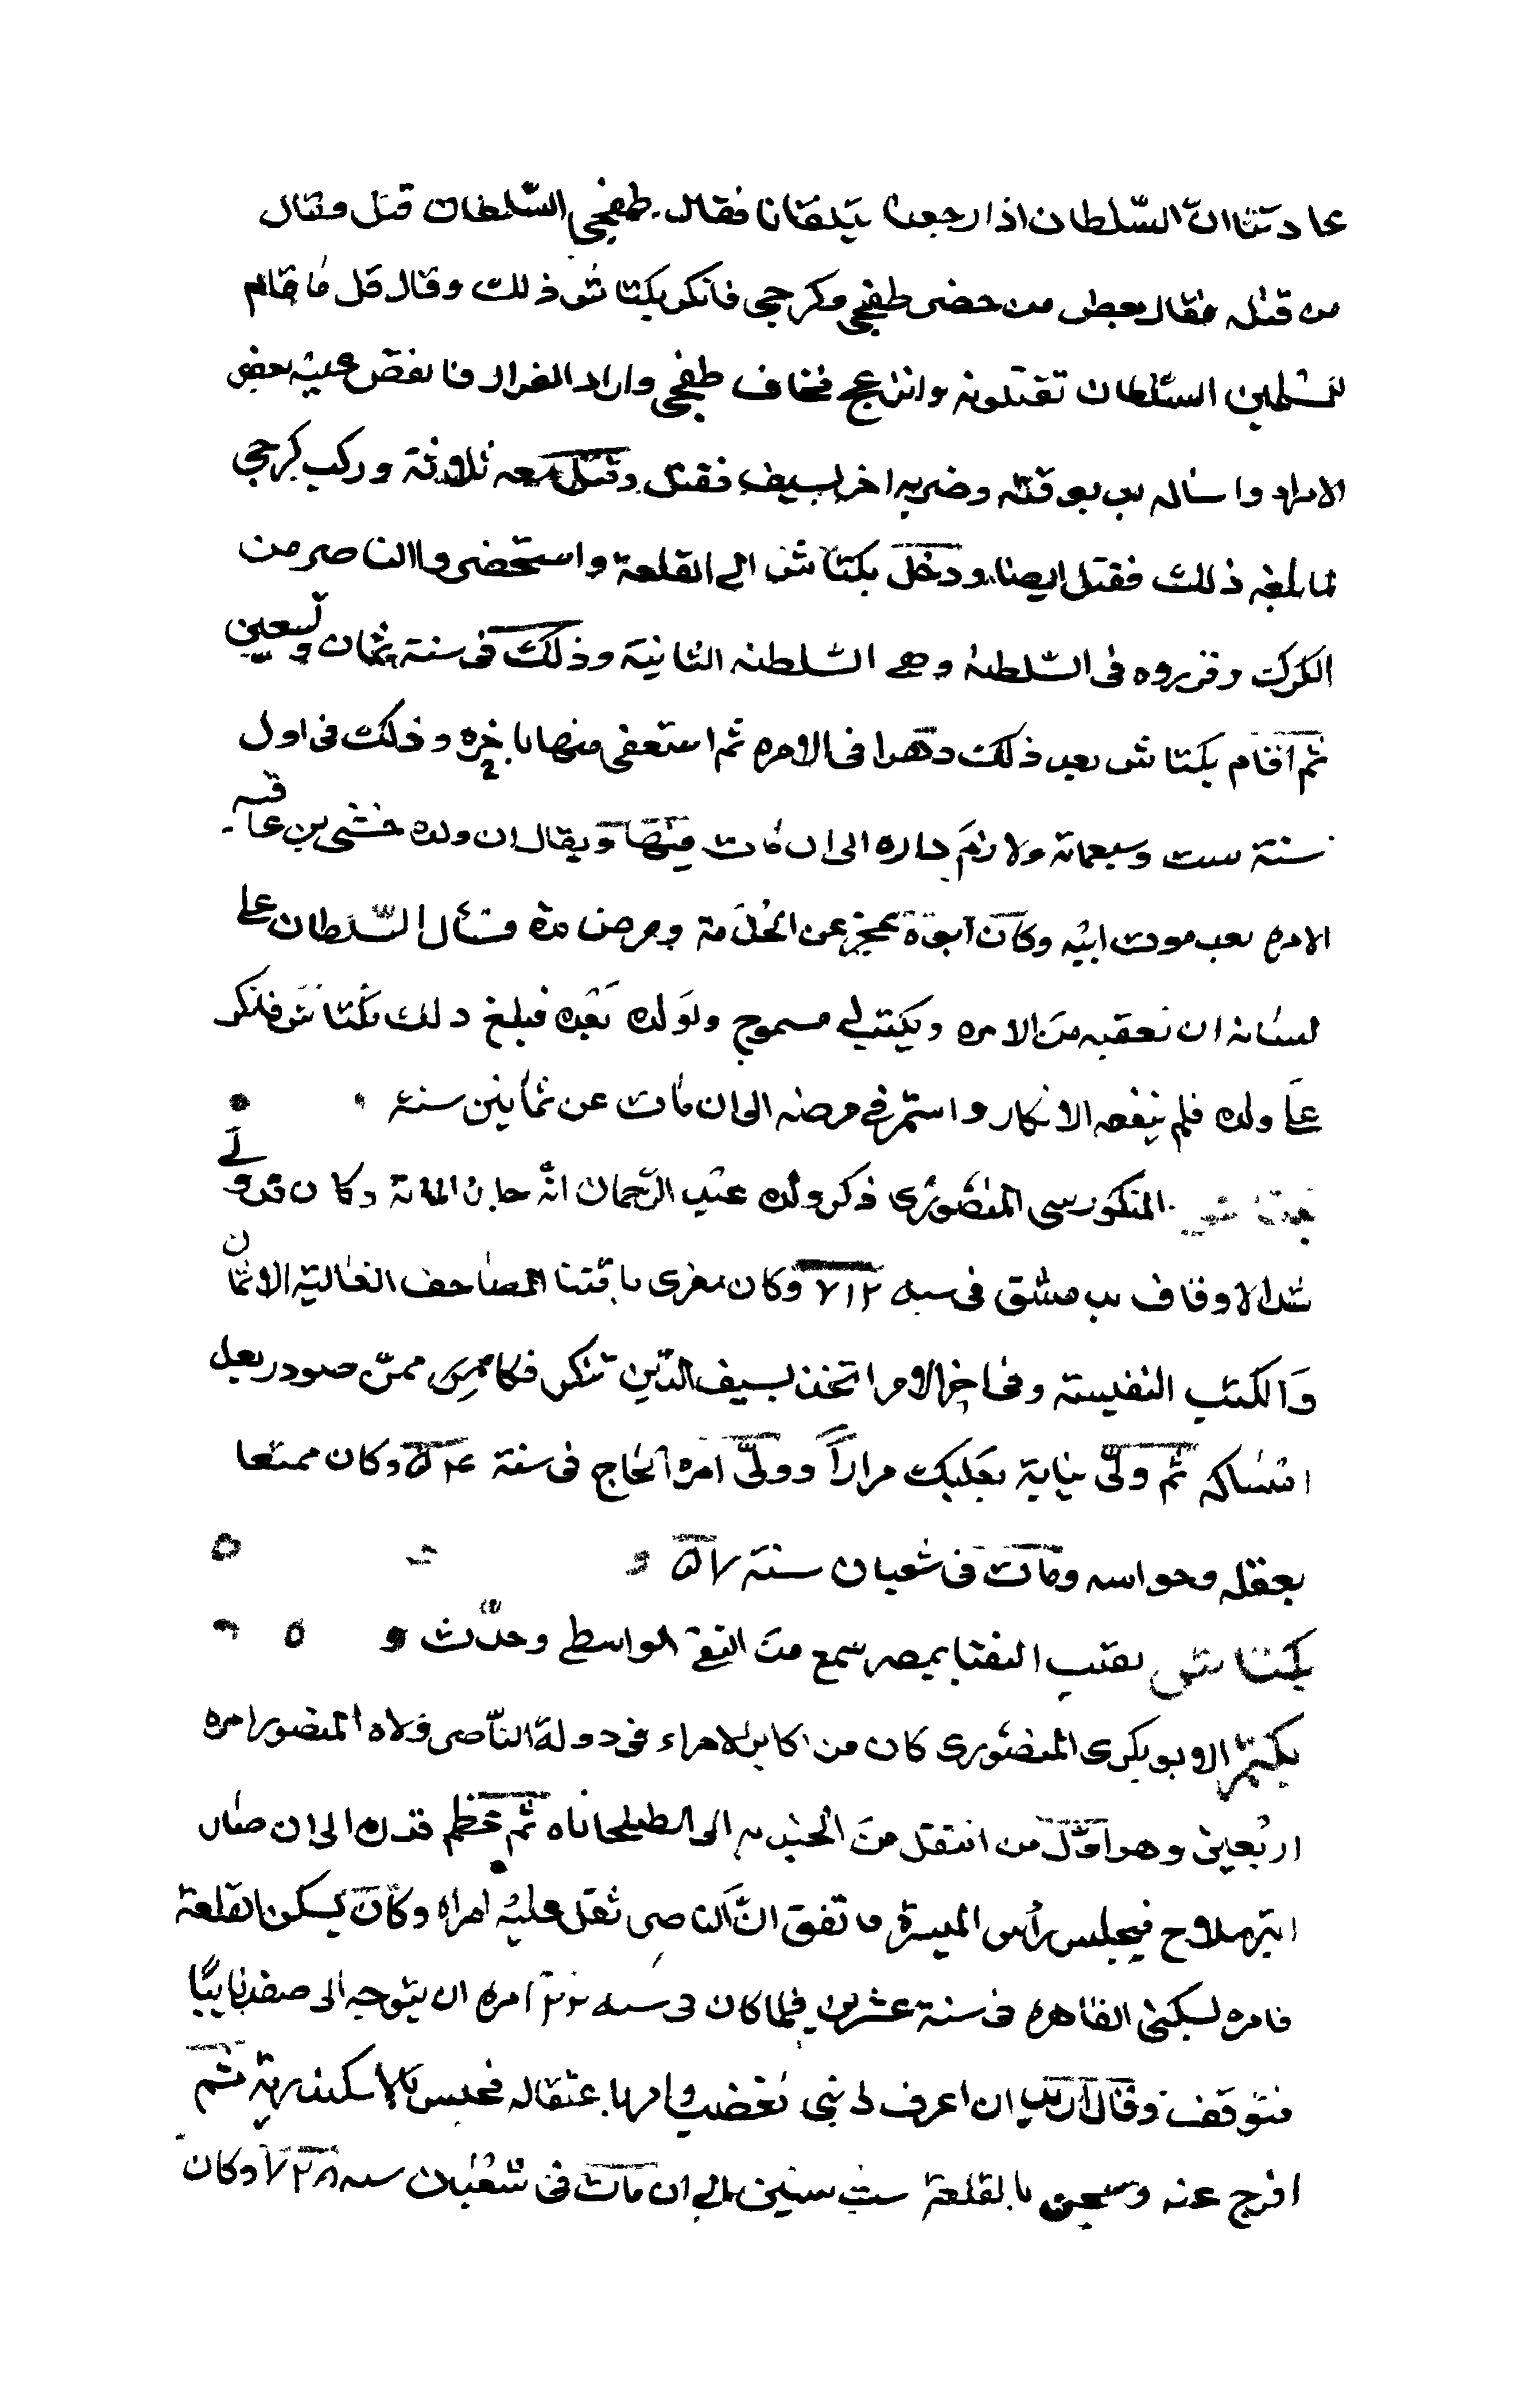 عادتنا ان السلطان اذا رجعنا يتلقانا فقال طغجي السلطان قتل فقال
من قتله فقال بعض من حضر طغجي وكرجي فانكر بكتاش ذلك وقال كل ما قام
للمسلمين السلطان تقتلونه وانزعج فخاف طغجي واراد الفرار فانقض عليه بعض
الامراء وضربه اخر بسيف فقتل وقتل معه ثلاثة وركب كرجي
لما بلغه ذلك فقتل ايضا ودخل بكتاش الى القلعة واستحضروا الناصر من
الكرك وقرروه فى السلطنة وهي السلطنه الثانية وذلك فى سنة ثمان وتسعين
ثم اقام بكتاش بعد ذلك دهرا فى الامره ثم استعفى منها باخره وذلك فى اول
سنة ست وسبعمائة ولازم داره الى ان مات فيها ويقال ان ولده خشى من عاقبة
الامره بعد موت ابيه وكان ابوه عجز عن الخدمة ومرض مدة فسأل السلطان على
لسانه ان يعفيه من الامره ويكتب له مسموح ولولده بعده فبلغ ذلك بكتاش فانكر
على ولده فلم ينفعه الانكار واستمر في مرضه الى ان مات عن ثمانين سنة
بكتاش المنكورسى المنصورى ذكر ولده عبد الرحمان انه جاز المائة وكان قد ولي
شد الاوقاف بدمشق فى سنه ٧١٢ وكان مغرى باقتنا المصاحف الغالية الاثمان
والكتب النفيسة وفى اخر الامر اتخذ بسيف الدين تنكز فكان ممن صودر بعد
امساكه ثم ولى نيابة بعلبك مرارا وولى امرة الحاج فى سنة ٥٤ وكان ممتعا
بعقله وحواسه ومات فى شعبان سنة ٥٧ ٥
بكتاش نقيب النقبا بمصر سمع من التقي الواسطي وحدث ٥ ٥
بكتمر الابوبكرى المنصورى كان من اكابر الامراء فى دولة الناصر ولاه المنصور امره
اربعين وهو اول من انتقل من الجنديه الى الطبلخاناه ثم عظم قدره الى ان صار
امير سلاح فيجلس رأس الميسرة فاتفق ان الناصر ثقل عليه امراه وكان يسكن القلعة
فامره بسكنى القاهره فى سنة عشرين فلما كان فى سنه ٢٢ امره ان يتوجه الى صفد نايبًا
فتوقف وقال اريد ان اعرف ذنبى فغضب وامر باعتقاله فحبس بالاسكندرية ثم
افرج عنه وسجن بالقلعة ست سنين الى ان مات فى شعبان سنه ٧٢٨ وكان